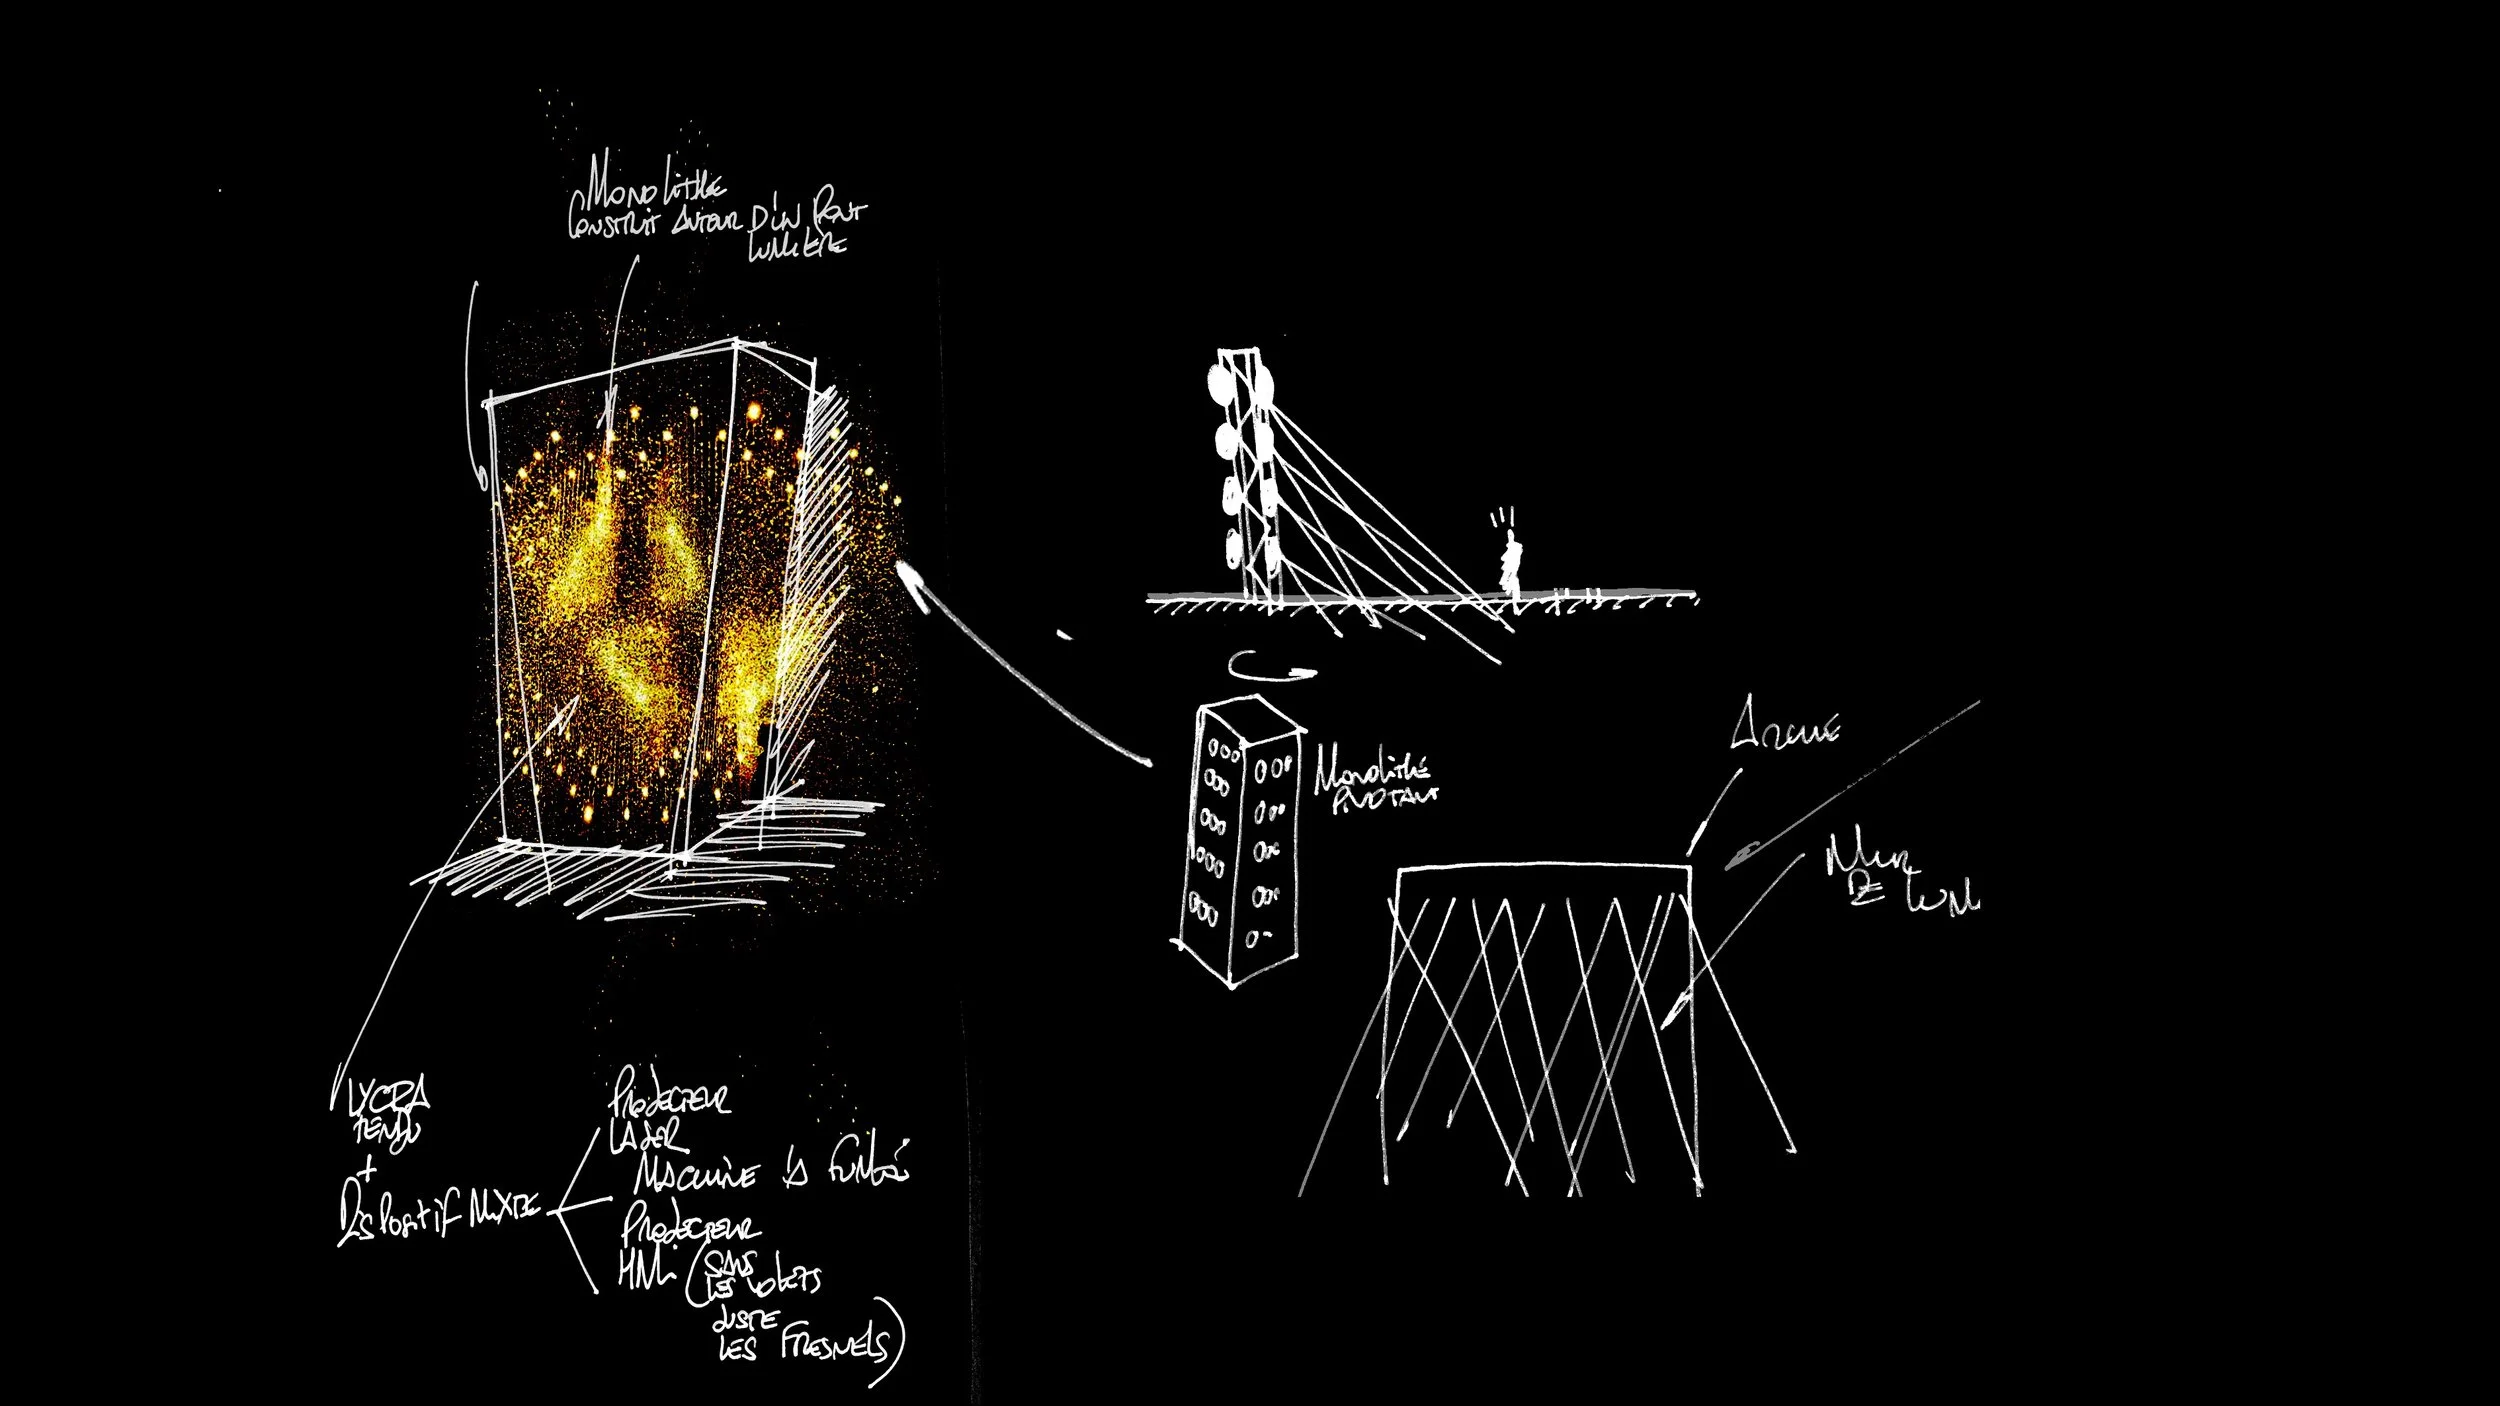 Monolithe
Construit autour d'un pont
lumière
Monolithe
pivotant
Arche
Mur
de lum
Lycra
tendu
+
Dispositif mixte
Projecteur
laser
Machine à fumée
Projecteur
HMI (sans
les volets
juste
les Fresnels)